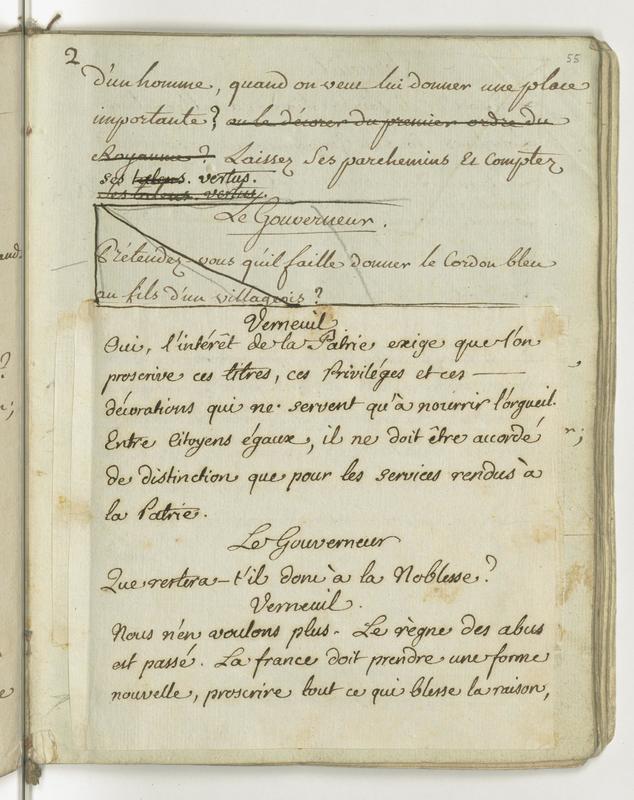 2
55
d'un homme, quand on veut lui donner une place
importante? ou le décorer du premier ordre du
Royaume? Laissez Ses parchemins Et Comptez
ses talens. vertus.
Ses talens. vertus.
Le Gouverneur.
Prétendez-vous qu'il faille donner le Cordon bleu
au fils d'un villageois?
Verneuil
Oui, l'intérêt de la Patrie exige que l'on
proscrive ces titres, ces Priviléges et ces —
décorations qui ne servent qu'à nourrir l'orgueil.
Entre Citoyens égaux, il ne doit être accordé
de distinction que pour les services rendus à
la Patrie.
Le Gouverneur
Que restera-t'il donc à la Noblesse?
Verneuil.
Nous n'en voulons plus. Le règne des abus
est passé. La france doit prendre une forme
nouvelle, proscrire tout ce qui blesse la raison,